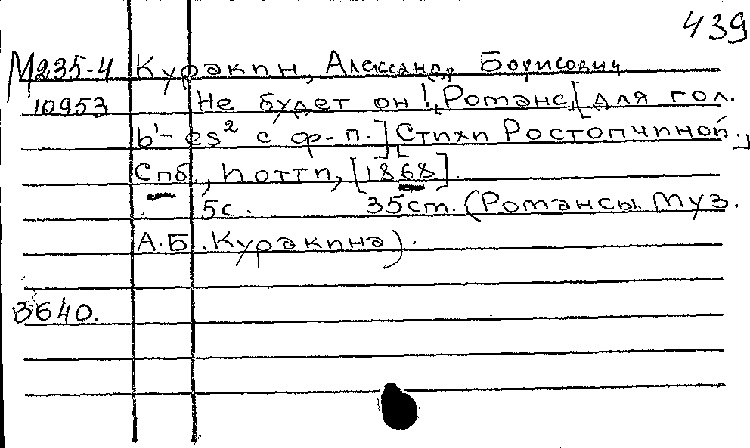 439
М235-4 Куракин, Александр Борисович
10953 Не будет он!, Романс [для гол.
b'-es² с ф-п.] [Стихи Ростопчиной.,
Спб., Потти, [1868].
5с. 35ст. (Романсы муз.
А.Б. Куракина).
3640.